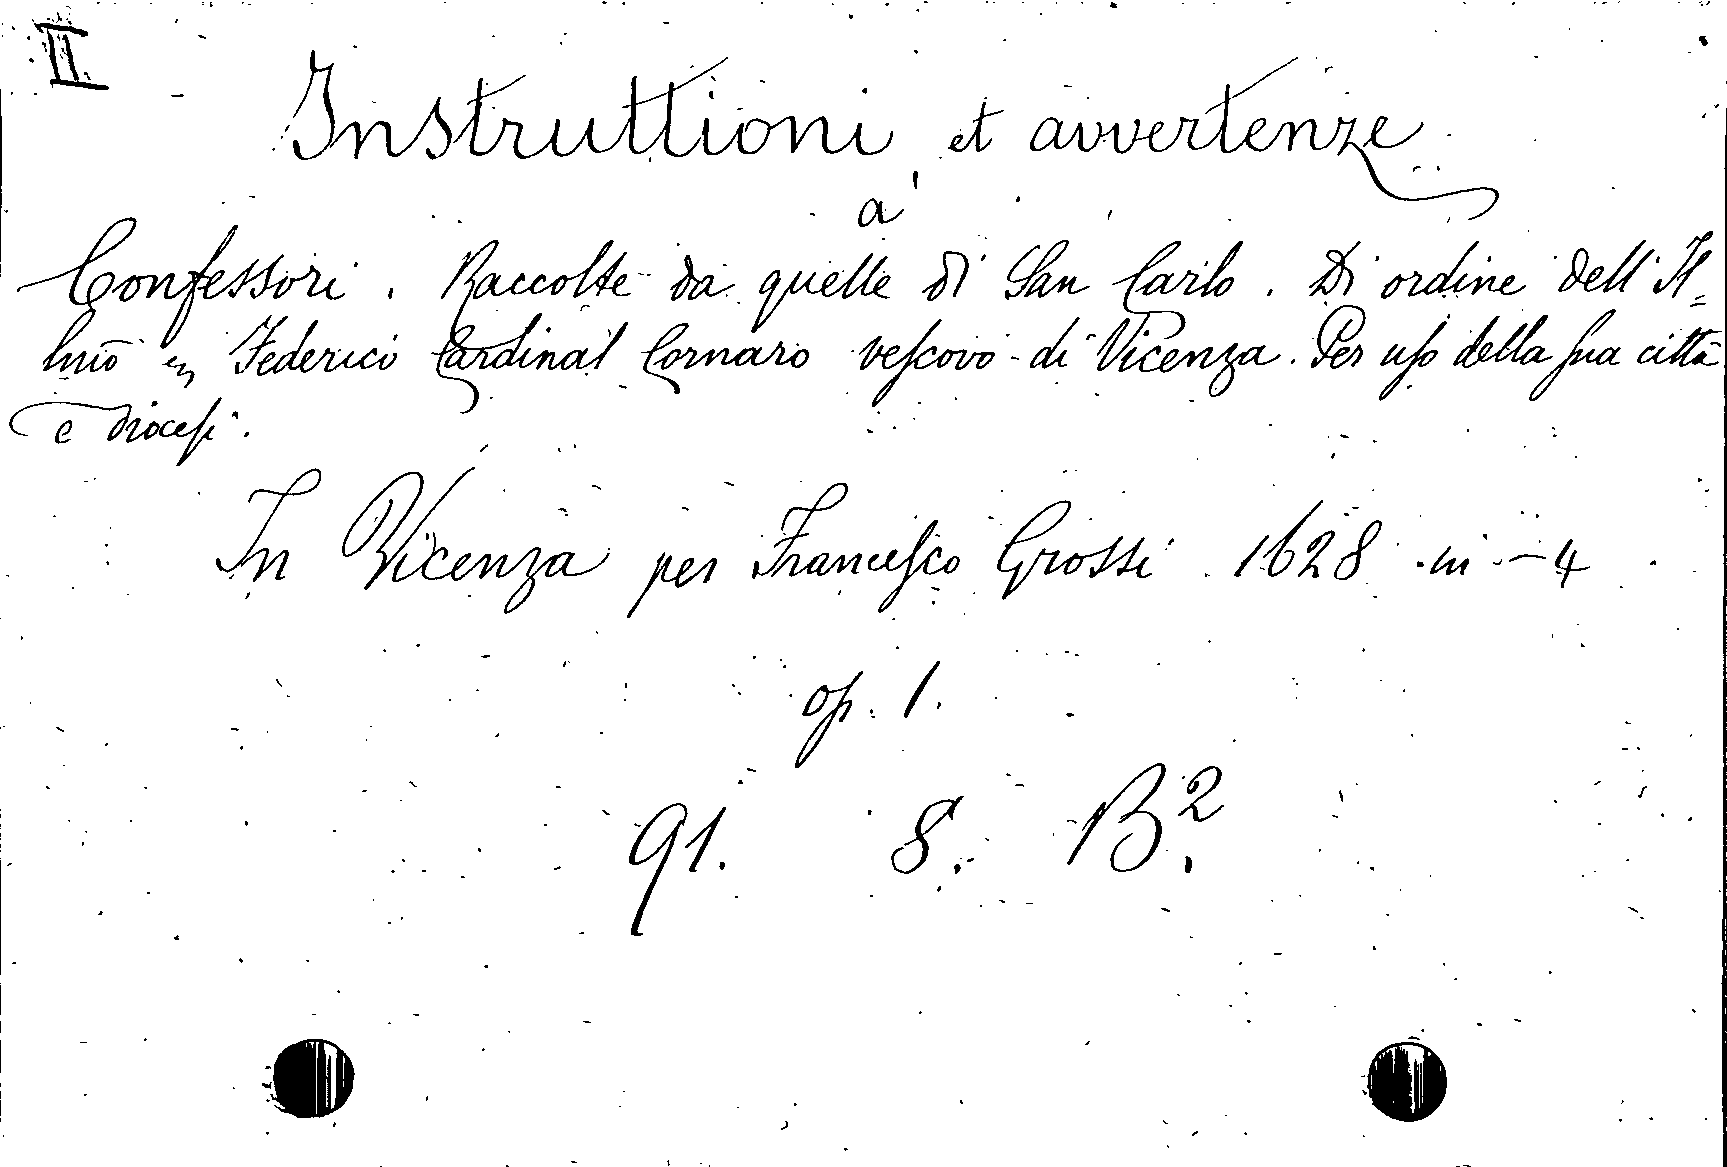 II.
Instruttioni et avvertenze
a'
Confessori. Raccolte da quelle di San Carlo. Di ordine dell' Il=
lmõ Federico Cardinal Cornaro veſcovo di Vicenza. Per uſo della ſua città
e dioceſi.
In Vicenza per Franceſco Grossi 1628 in-4
op. 1.
91. 8. B².